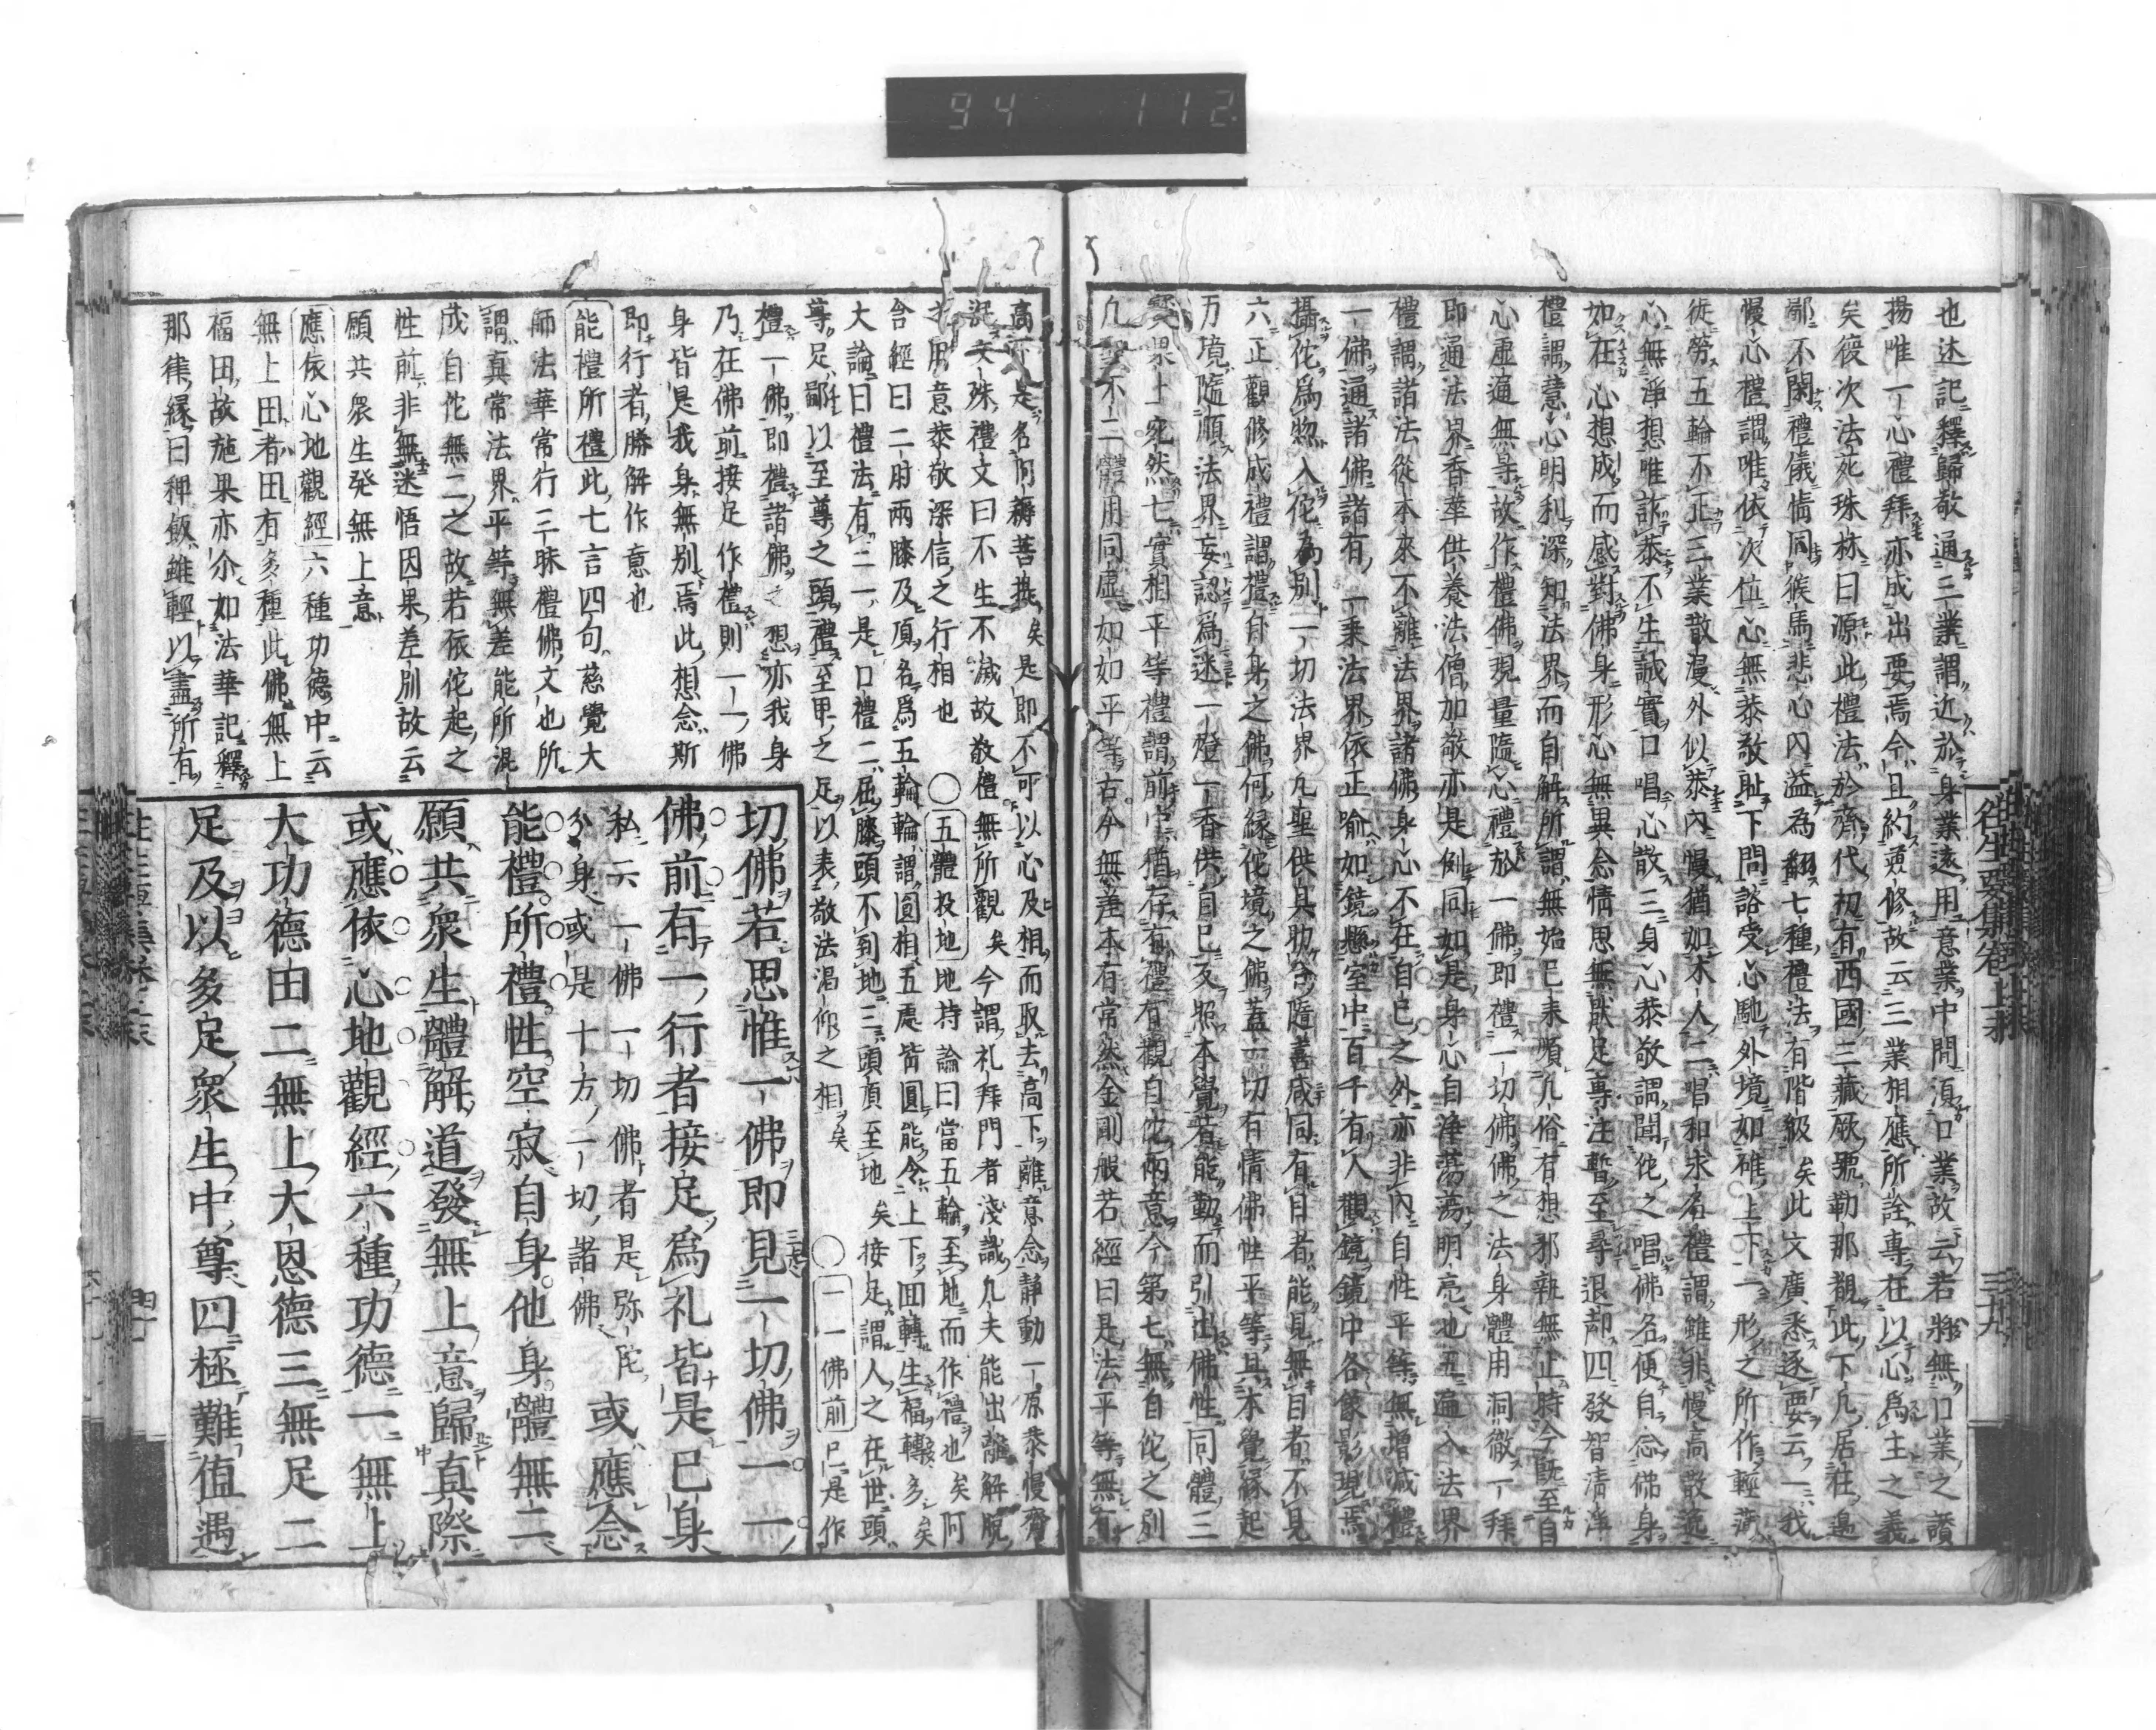 94 112
也述記釋歸敬通三業謂近於身業遠用意業中間須口業故云若將無口業之讃
揚唯一心禮拜亦成出要焉今且約兼修故云三業相應所詮專在以心爲主之義
矣復次法苑珠林曰源此禮法於齊代初有西國三藏厥號勒那覩此下凡居在邊
鄙不閑禮儀情同猴馬悲心內溢為翻七種禮法有階級矣此文廣悉逐要云一我
慢心禮謂唯依次位心無恭敬耻下問諮受心馳外境如碓上下二形之所作輕薄
徒勞五輪不正三業散漫外似恭內慢猶如木人二唱和求名禮謂雖非慢高散逸
心無淨想唯詐恭不生誠實口唱心散三身心恭敬謂聞佗之唱佛名便自念佛身
如在心想成而感對佛身形心無異念情思無猒足專注暫至尋退却四發智清淨
禮謂慧心明利深知法界而自解所謂無始已來順凡俗有想邪執無正時今既至自
心虛通無㝵故作禮佛現量隨心禮於一佛即禮一切佛佛之法身體用洞徹一拜
即通法界香華供養法僧加敬亦是例同如是身心自淨蕩蕩明亮也五遍入法界
禮謂諸法從本來不離法界諸佛身心不在自己之外亦非內自性平等無增減禮
一佛通諸佛諸有一乘法界依正喻如鏡懸室中百千有人觀鏡鏡中各象影現焉
攝佗爲惣入佗為別一切法界凡聖供具助念隨喜咸同有目者能見無目者不見
六正觀修成禮謂禮自身之佛何緣佗境之佛蓋一切有情佛性平等具本覺緣起
万境隨順法界妄認爲迷一燈一香供自已反照本覺若能勤而引出佛性同體三
寶果上宛然七實相平等禮謂前六猶存有禮有觀自佗兩意今第七無自佗之別
凡聖不二體用同虛如如平等古今無差本有常然金剛般若經曰是法平等無有
往生要集卷上末
三十九
高下是名阿耨菩提矣是即不可以心及相而取去高下離意念靜動一原恭慢齊
泯文殊禮文曰不生不滅故敬禮無所觀矣今謂礼拜門者淺識凡夫能出離解脫
用意恭敬深信之行相也○五體投地地持論曰當五輪至地而作禮也矣阿
含經曰二肘兩膝及頂名爲五輪輪謂圓相五處皆圓能令上下回轉生福轉多矣
大論曰禮法有二一是口禮二屈膝頭不到地三頭頂至地矣接足謂人之在世頭
尊足鄙以至尊之頭禮至卑之足以表敬法渴仰之相矣○一一佛前已是作
禮一佛即禮諸佛之想亦我身
乃在佛前接足作禮則一一佛
身皆是我身無別焉此想念斯
即行者勝解作意也
能禮所禮此七言四句慈覺大
師法華常行三昧禮佛文也所
謂真常法界平等無差能所混
成自佗無二之故若依佗起之
性前非無迷悟因果差別故云
願共衆生発無上意
應依心地觀經六種功德中云
無上田者田有多種此佛無上
福田故施果亦尒如法華記釋
那律緣曰稗飯雖輕以盡所有
切佛若思惟一佛即見一切佛一一
佛前有一行者接足爲礼皆是已身
私云一佛一切佛者是弥陀
分身或是十方一切諸佛
或應念
能禮所禮性空寂自身他身體無二
願共衆生體解道發無上意歸真際
或應依心地觀經六種功德一無上
大功德由二無上大恩德三無足二
足及以多足衆生中尊四極難值遇
四十